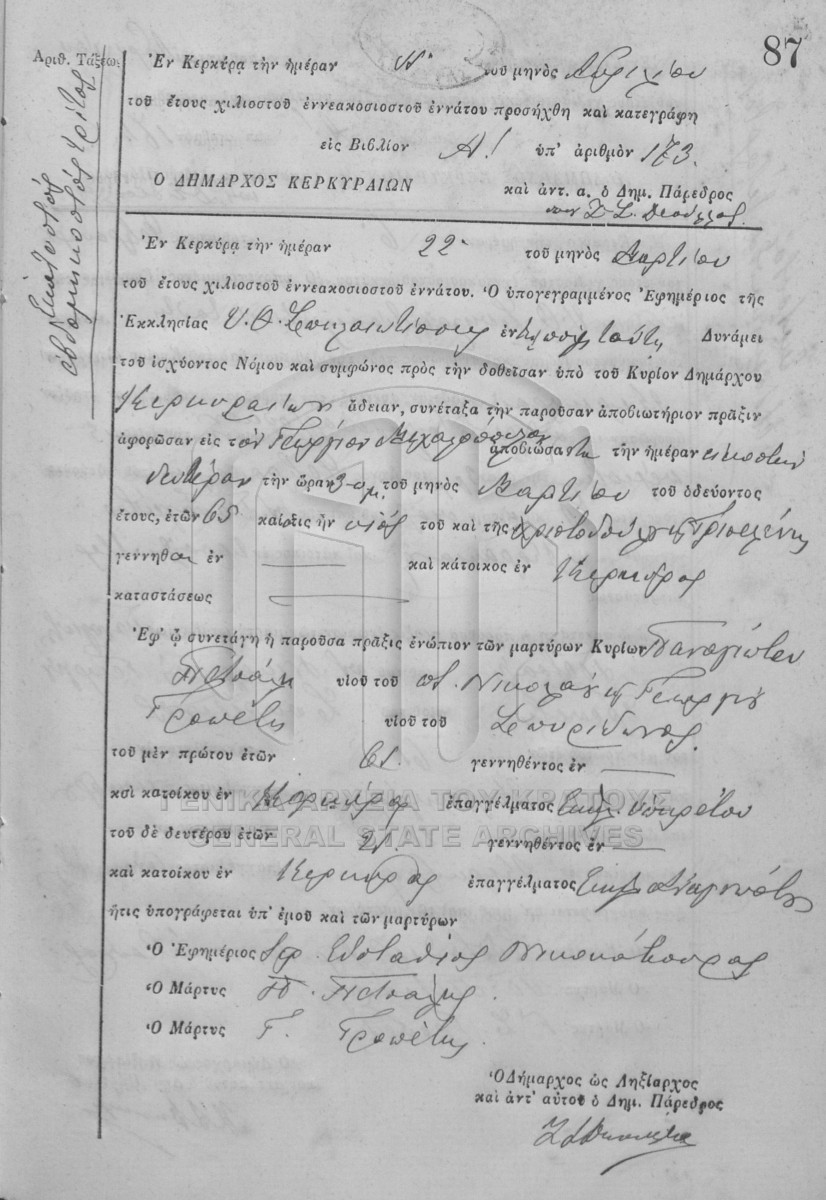 87
Ἀριθ. Τάξεως
Ἑκατοστός
ἑβδομηκοστός τρίτος
Ἐν Κερκύρᾳ τὴν ἡμέραν τοῦ μηνὸς Ἀπριλίου
τοῦ ἔτους χιλιοστοῦ ἐννεακοσιοστοῦ ἐννάτου προσήχθη καὶ κατεγράφη
εἰς Βιβλίον Α! ὑπ' ἀριθμὸν 173.
Ὁ ΔΗΜΑΡΧΟΣ ΚΕΡΚΥΡΑΙΩΝ καὶ ἀντ. α. ὁ Δημ. Πάρεδρος
Ἐν Κερκύρᾳ τὴν ἡμέραν 22 τοῦ μηνὸς Μαρτίου
τοῦ ἔτους χιλιοστοῦ ἐννεακοσιοστοῦ ἐννάτου. Ὁ ὑπογεγραμμένος Ἐφημέριος τῆς
Ἐκκλησίας Υ. Θ. Σπηλαιωτίσσης ἐν τῇ πόλει ταύτῃ Δυνάμει
τοῦ ἰσχύοντος Νόμου καὶ συμφώνος πρὸς τὴν δοθεῖσαν ὑπὸ τοῦ Κυρίου Δημάρχου
Κερκυραίων ἄδειαν, συνέταξα τὴν παροῦσαν ἀποβιωτήριον πρᾶξιν
ἀφορῶσαν εἰς τὸν Γεώργιον Μιχαλόπουλον ἀποβιώσαντα τὴν ἡμέραν εἰκοστὴν
δευτέραν τὴν ὥραν 3 μ.μ. τοῦ μηνὸς Μαρτίου τοῦ ὁδεύοντος
ἔτους, ἐτῶν 65 καὶ ὅστις ἦν υἱὸς τοῦ καὶ τῆς Χριστοδούλου
γεννηθ ἐν — καὶ κάτοικος ἐν Κέρκυρας
καταστάσεως —
Ἐφ' ᾧ συνετάγη ἡ παροῦσα πρᾶξις ἐνώπιον τῶν μαρτύρων Κυρίων Παναγιώτου
Πετσάλη υἱοῦ τοῦ ποτ. Νικολάου καὶ Γεωργίου
Τροπέτη υἱοῦ τοῦ Σπυρίδωνος.
τοῦ μὲν πρώτου ἐτῶν 61. γεννηθέντος ἐν —
καὶ κατοίκου ἐν Κέρκυρα ἐπαγγέλματος Ἐκκλ. ὑπηρέτου
ΓΕΝΙΚΑ ΑΡΧΕΙΑ ΤΟΥ ΚΡΑΤΟΥΣ
GENERAL STATE ARCHIVES
τοῦ δὲ δευτέρου ἐτῶν 21. γεννηθέντος ἐν —
καὶ κατοίκου ἐν Κέρκυρας ἐπαγγέλματος Ἐκκλ. ἀναγνώστη
ἥτις ὑπογράφεται ὑπ' ἐμοῦ καὶ τῶν μαρτύρων
Ὁ Ἐφημέριος Ἱερ. Εὐστάθιος
Ὁ Μάρτυς Π. Πετσάλης.
Ὁ Μάρτυς Γ. Τροπέτης.
Ὁ Δήμαρχος ὡς Ληξίαρχος
καὶ ἀντ' αὐτοῦ ὁ Δημ. Πάρεδρος